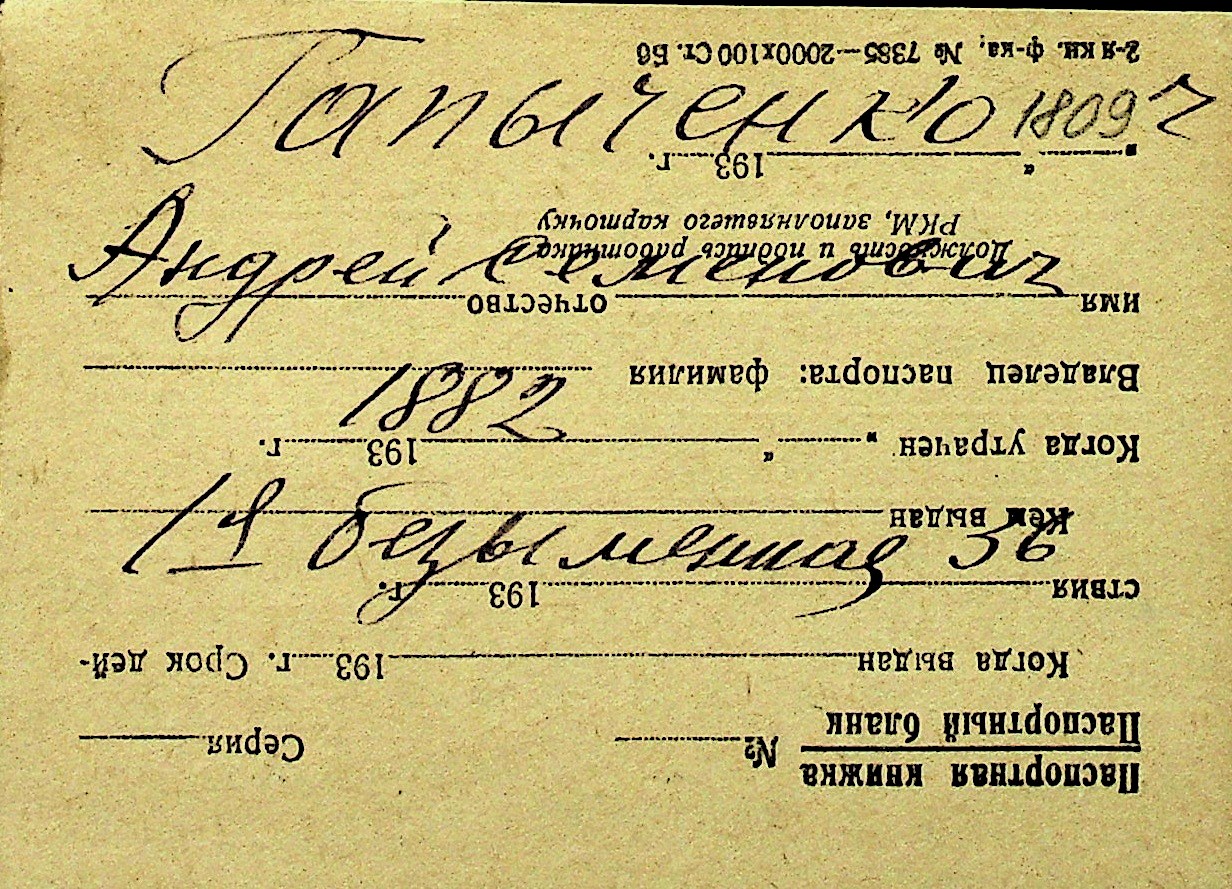 Гапыченко 1809
Андрей Семенович
1882
1я безыменная 36
Паспортная книжка
Паспортный бланк № Серия
Когда выдан 193 г. Срок дей-
ствия 193 г.
Кем выдан
Когда утрачен „ “ 193 г.
Владелец паспорта: фамилия
имя отчество
Должность и подпись работника
РКМ, заполнявшего карточку
„ “ 193 г.
2-я кн. ф-ка, № 7385—2000х100 Ст. Бб